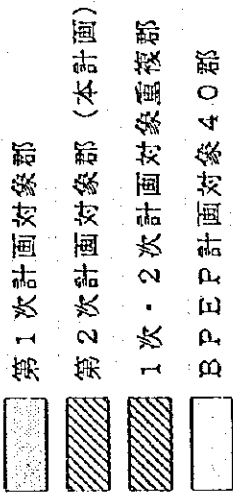 第1次計画対象郡
第2次計画対象郡(本計画)
1次・2次計画対象重複郡
BPEP計画対象40郡